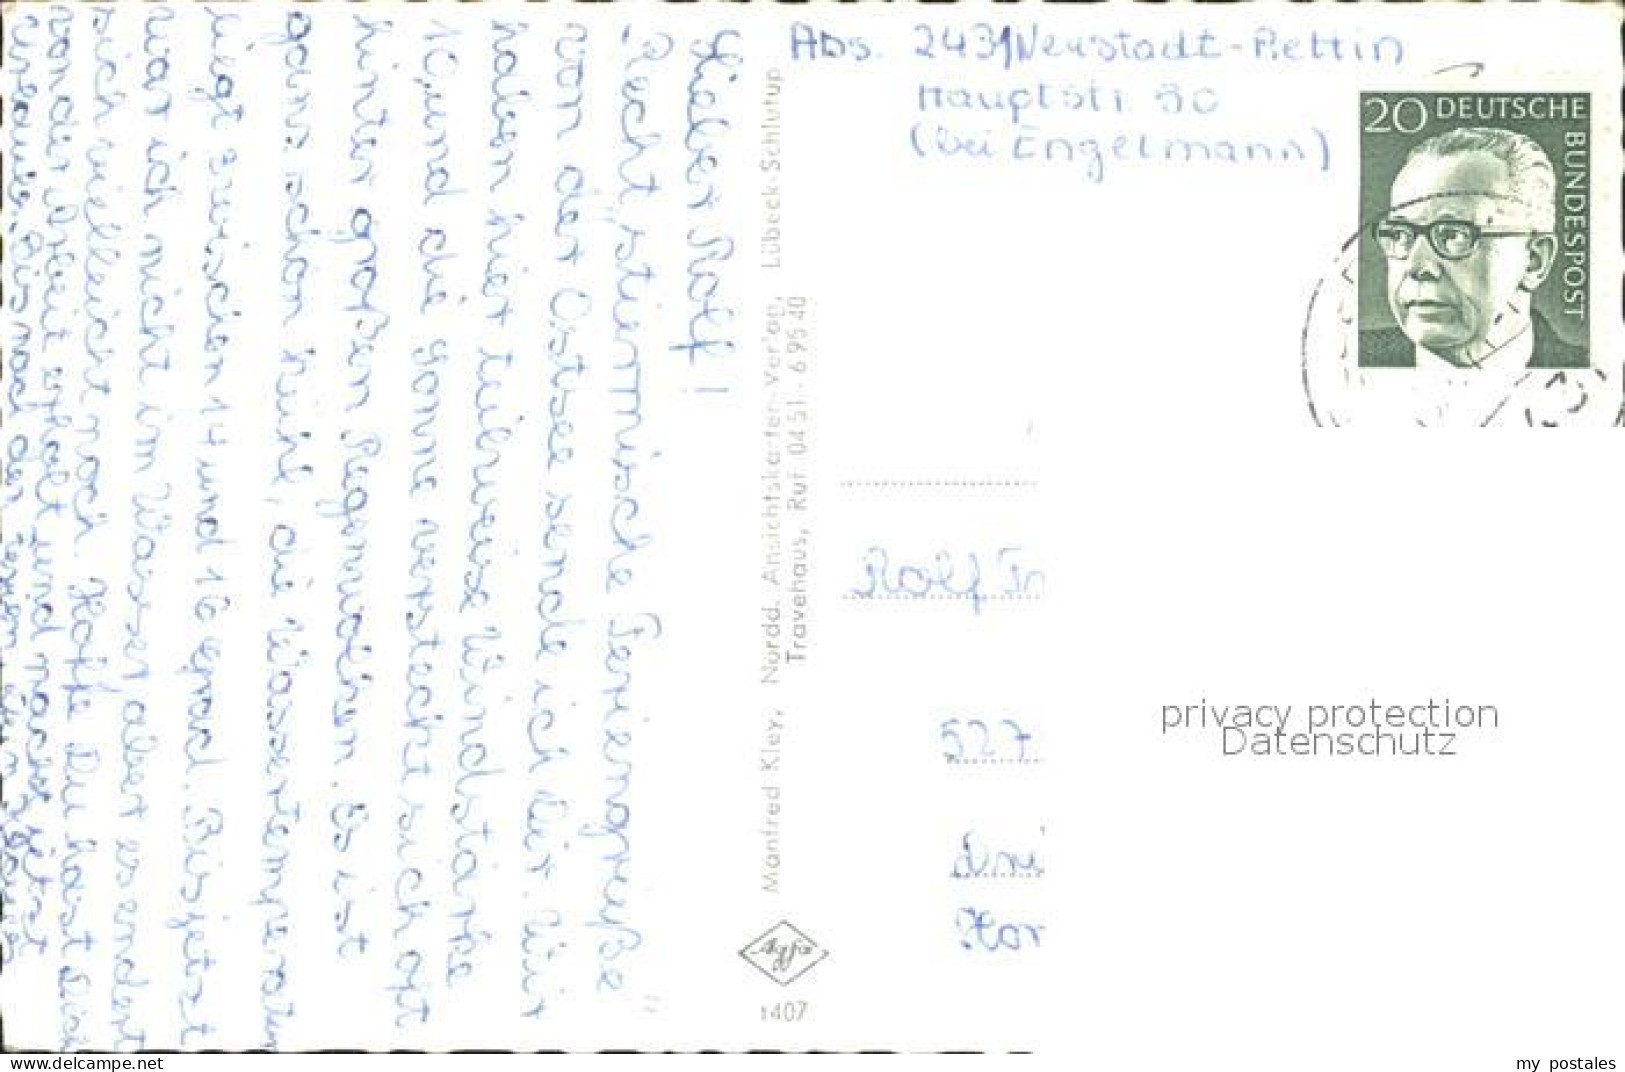 Abs. 2431 Neustadt-Rettin
Hauptstr. 90
(bei Engelmann)
20 DEUTSCHE
BUNDESPOST
Lieber Rolf!
„Recht stürmische Feriengrüße"
von der Ostsee sende ich Dir. Wir
haben hier teilweise Windstärke
10, und die Sonne versteckt sich oft
hinter großen Regenwolken. Es ist
ganz schön kühl, die Wassertemperatur
liegt zwischen 14 und 16 Grad. Bis jetzt
war ich nicht im Wasser, aber es ändert
sich vielleicht noch. Hoffe Du hast Dich
von der Arbeit erholt und machst jetzt
Urlaub. Bis nach den Ferien
Manfred Kley, Nordd. Ansichtskarten-Verlag, Lübeck-Schlutup
Travehaus, Ruf 04 51 - 6 95 40
Agfa
1407
Rolf
527
privacy protection
Datenschutz
my postales